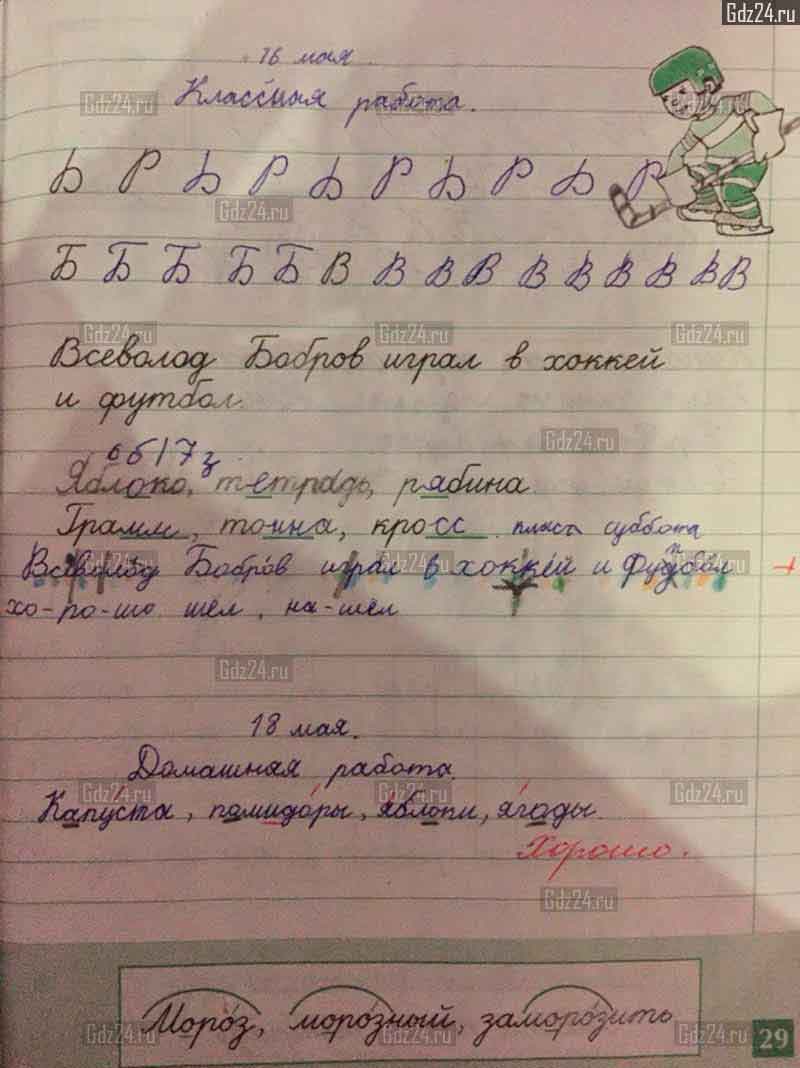 Gdz24.ru
16 мая.
Классная работа.
Б Р Б Р Б Р Б Р Б Р
Б Б Б Б Б В В В В В В В В В В
Всеволод Бобров играл в хоккей
и футбол.
6б17з.
Яблоко, тетрадь, рябина.
Грамм, тонна, кросс суббота
Всеволод Бобров играл в хоккей и
хо-ро-шо шёл, на-шёл
18 мая.
Домашная работа.
Капуста, помидоры, яблоки, ягоды.
Хорошо.
Мороз, морозный, заморозить
29